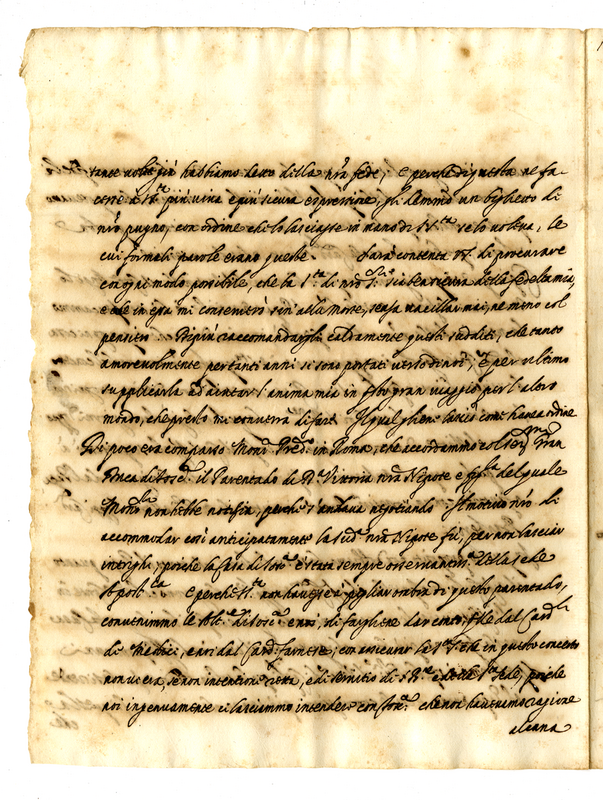 tante volte già habbiamo detto della nra fede; e perche di questa ne fa-
cesse à Sta più viva e più sicura espressione, gli demmo un biglietto di
nro pugno, con ordine che lo lasciasse in mano di S. Sta se lo voleva, le
cui formali parole erano queste. Sarà contenta VS. di procurare
con ogni modo possibile, che la Sta di nro Sre sia ben sicura della fedeltà mia,
e che in essa mi conserverò sin' alla Morte, senza vacillar mai, ne meno col
pensiero. Di più raccomandargli caldamente questi sudditi, che tanto
amorevolmente per tanti anni si sono portati verso di noi; e per ultimo
supplicarla ad aiutar l'anima mia in questo gran viaggio per l'altro
mondo, che presto mi converrà di fare. Il qual ghene lasciò come havea ordine
Di poco era comparso Monre Pred. in Roma, che accordammo col Sermo Gran
Duca di Tosca il Parentado di Da Vittoria nra Nipote e del quale
Monre non hebbe notitia, perche s'andava negotiando. Il motivo nro di
accommodar così anticipatamente la Suda nra Nipote fù, per non lasciar
intrighi, poiche la Casa di Tosca è stata sempre osservantma della Sede
Apostca e perche Sta non havesse à pigliar ombra di questo parentado,
convenimmo le Alte di Tosca e noi, di fargliene dar conto, esse dal Cardle
de Medici, e noi dal Card. Farnese, con assicurar la Sta S. che in questo concerto
non vi era, se non intentione retta, e di servitio di S. Bne e della Sta Sede, poiche
noi ingenuamente ci lasciammo intendere con che non havevamo cagione
alcuna